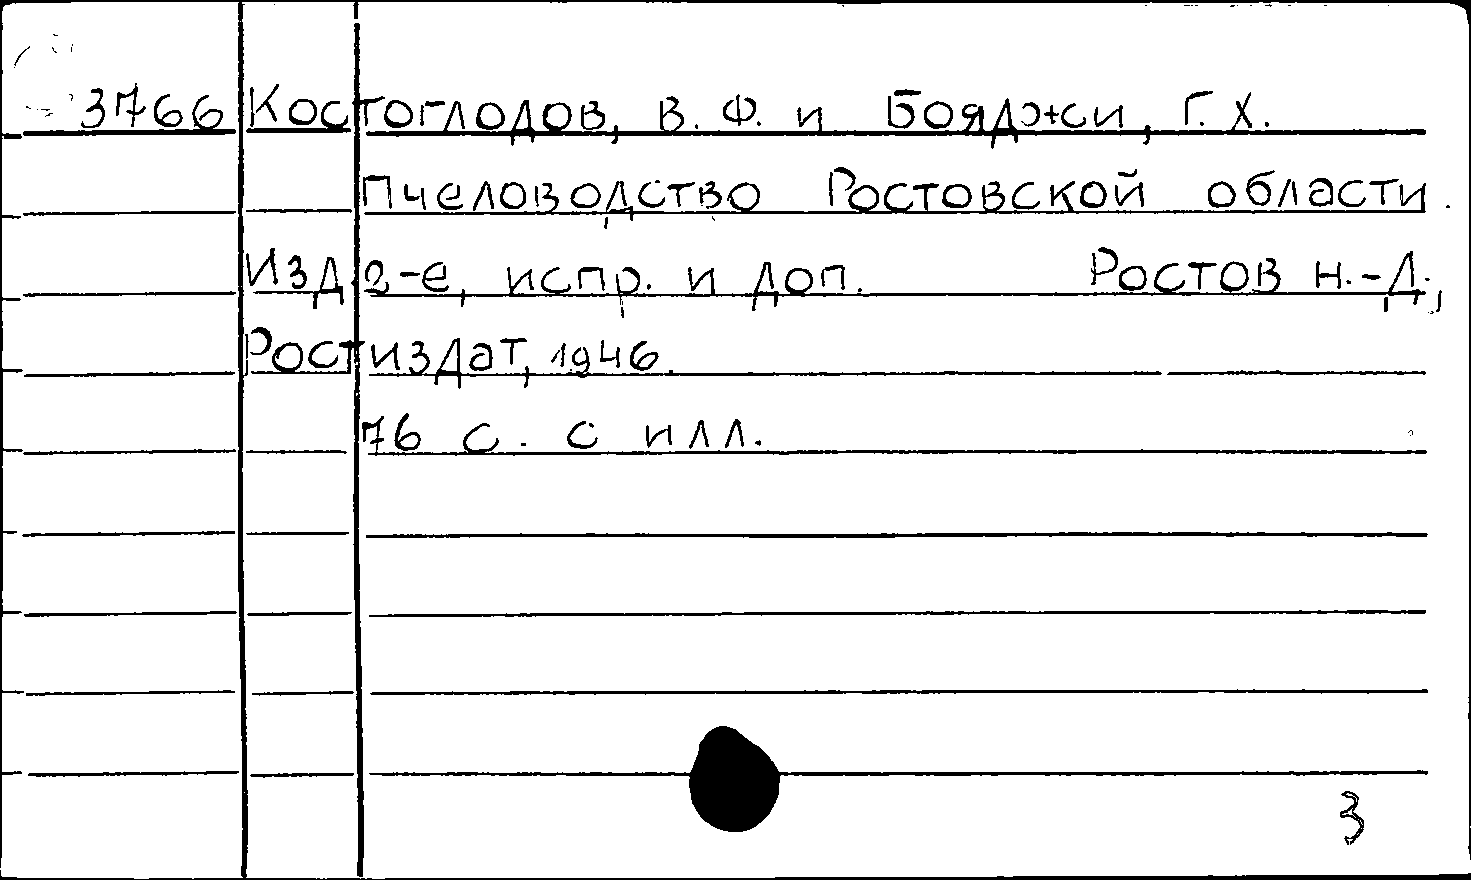 3766 Костоглодов, В. Ф. и Бояджи, Г. Х.
Пчеловодство Ростовской области.
Изд. 2-е, испр. и доп. Ростов н.-Д.,
Ростиздат, 1946.
76 с. с илл.
3